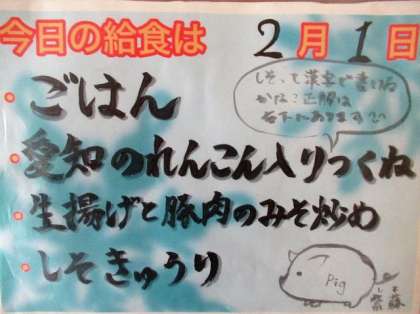 今日の給食は 2月1日
・ごはん
・愛知のれんこん入りつくね
・生揚げと豚肉のみそ炒め
・しそきゅうり
しそって漢字で書ける
かな？正解は
右下にあります
Pig